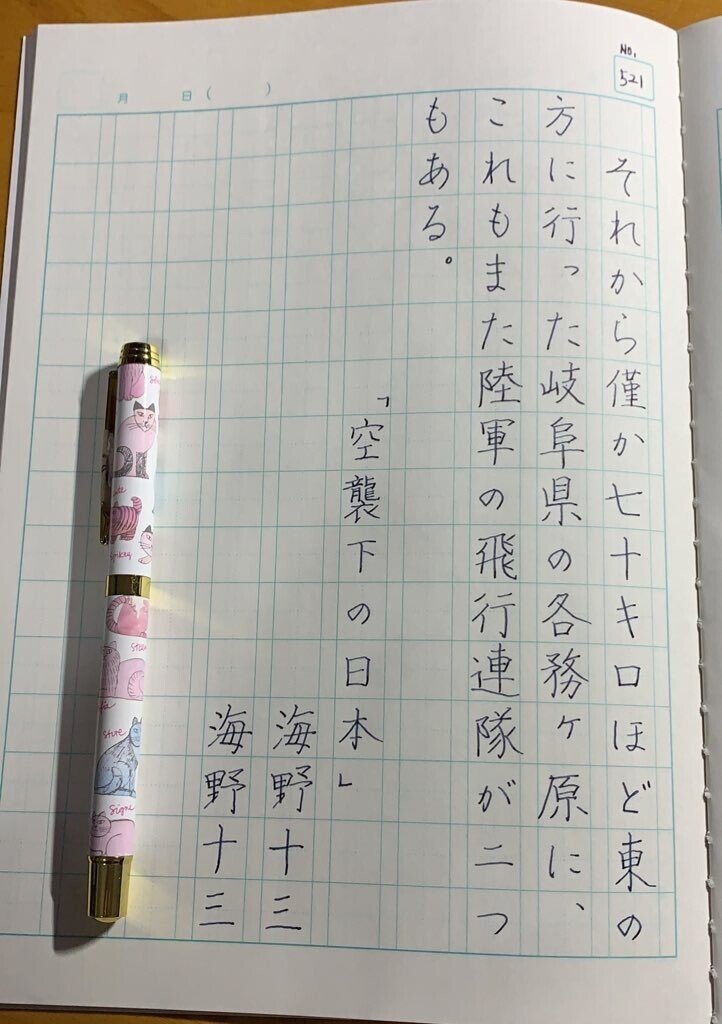 No.
521
月 日( )
それから僅か七十キロほど東の
方に行った岐阜県の各務ヶ原に、
これもまた陸軍の飛行連隊が二つ
もある。
「空襲下の日本」
海野十三
海野十三
store
signe